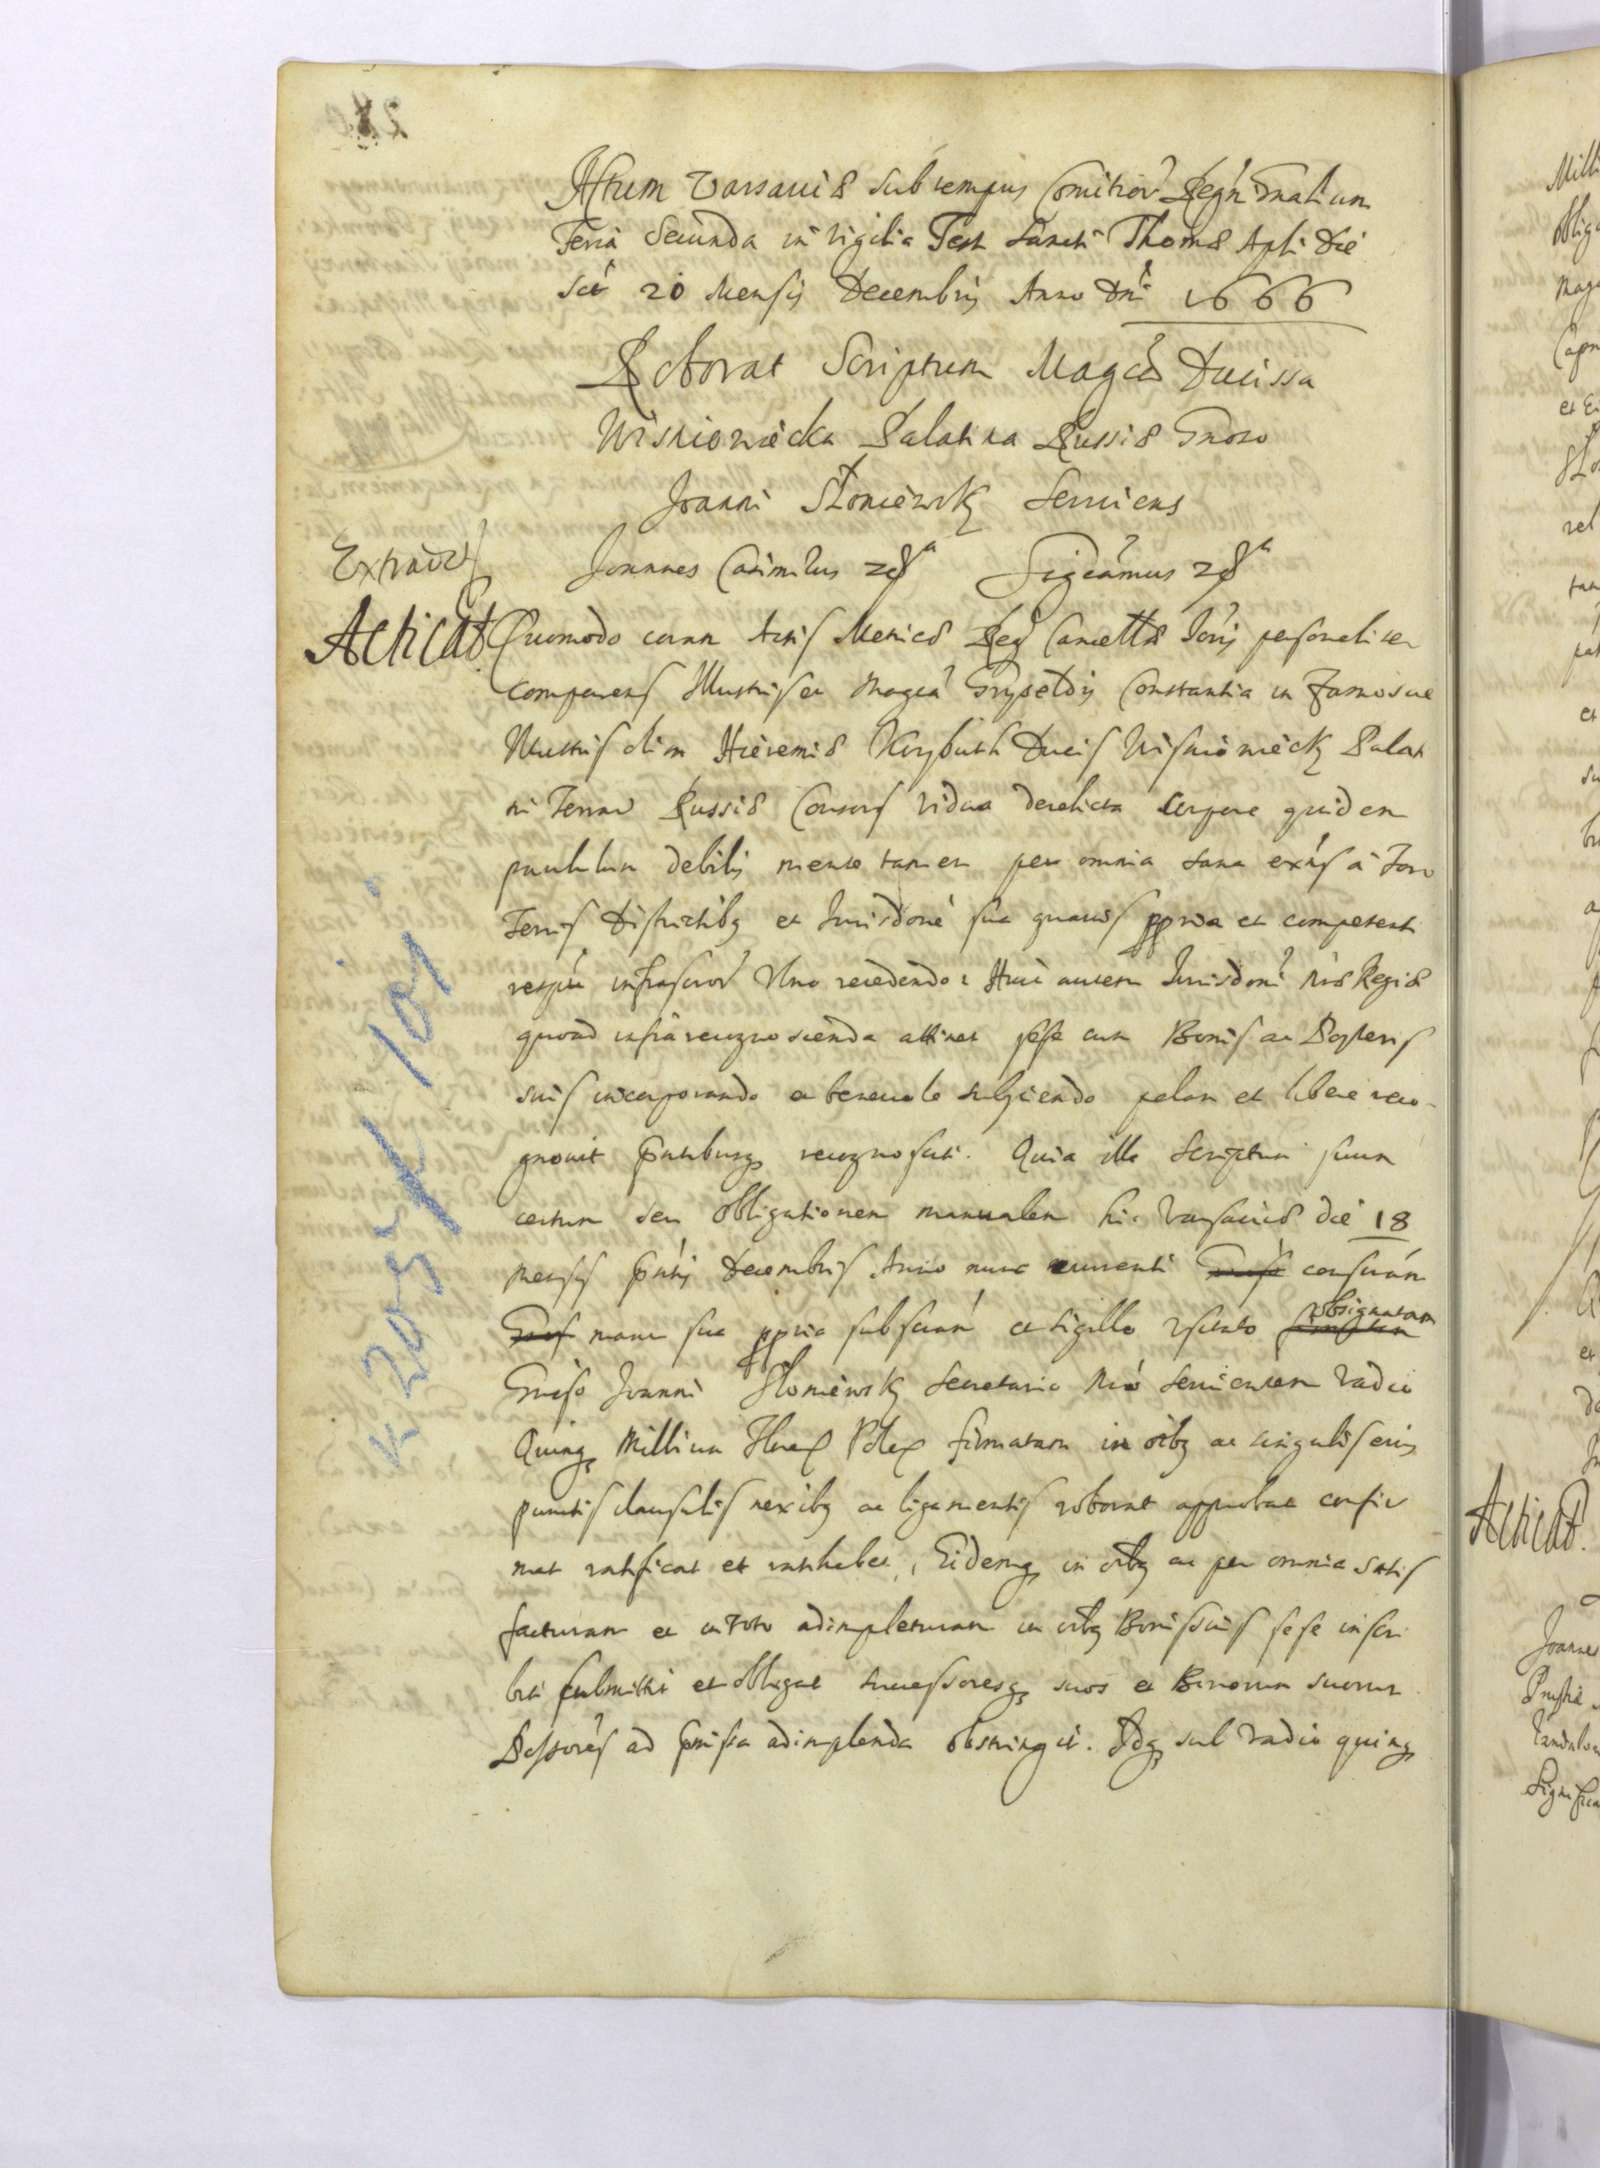 Actum Varsaviæ sub tempus Comitior Regni Gnalium
Feria Secunda in vigilia Festi Sancti Thomæ Apli Die
scil 20 Mensis Decembris Anno Dni 1666
Roborat Scriptum Magca Ducissa
Wisniowiecka Palatina Russiæ Gnoso
Joanni Słoniewsky Serviens
Extradit Joannes Casimirus etc Significamus etc
Acticat Quomodo coram Actis Metrices Reg Cancellæ Juris personaliter
comparens Illustris et Magca Gryzeldis Constantia in Zamoscie
Illustris olim Hieremiæ Korybuth Ducis Wisniowiecky Palati
ni Terrar Russiæ Consors vidua derelicta corpore quidem
paululum debilis mente tamen per omnia sana exns a Foro
Terris Districtibq et Jurisdone sua quavis ppria et competenti
respu infrascror Uno recedendo Huic autem Jurisdoni Nræ Regiæ
quoad infra recognoscenda attinet sese cum Bonis ac Posteris
suis incorporando ac benevole subjiciendo palam et libere reco
gnovit pntibusq recognoscit. Quia illa Scriptum suum
certum seu Obligationem manualem hic Varsaviæ die 18
mensis pntis Decembris Anno nunc currenti conscram
manu sua ppria subscram et sigillo usitato obsignatam
Gneroso Joanni Słoniewsky Secretario Nro servientem Vadio
Quinq Millium Flnor Polor firmatam in oibq ac singulis eius
punctis clausulis nexibq ac ligamentis roborat approbat confir
mat ratificat et ratihabet, Eidemq in oibq ac per omnia satis
facturam et in toto adimpleturam in oibq Bonis suis sese inscri
bit submittit et obligat Successoresq suos et Bonorum suorum
Possores ad pmissa adimplenda obstringit. Idq sub Vadio quinq
K 205 k 101
Acticat.